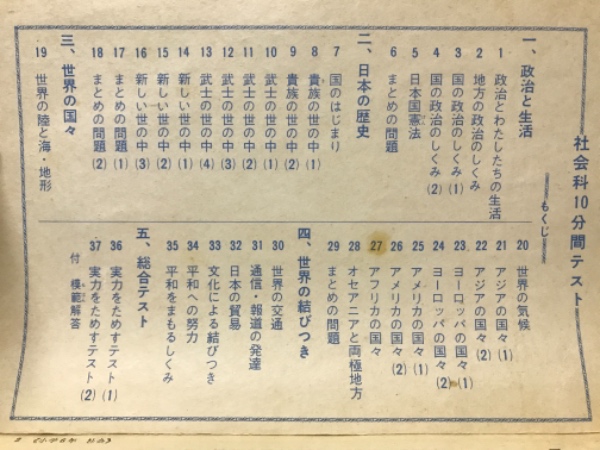 社会科10分間テスト
もくじ
一、政治と生活
1 政治とわたしたちの生活
2 地方の政治のしくみ
3 国の政治のしくみ(1)
4 国の政治のしくみ(2)
5 日本国憲法
6 まとめの問題
二、日本の歴史
7 国のはじまり
8 貴族の世の中(1)
9 貴族の世の中(2)
10 武士の世の中(1)
11 武士の世の中(2)
12 武士の世の中(3)
13 武士の世の中(4)
14 新しい世の中(1)
15 新しい世の中(2)
16 新しい世の中(3)
17 まとめの問題(1)
18 まとめの問題(2)
三、世界の国々
19 世界の陸と海・地形
20 世界の気候
21 アジアの国々(1)
22 アジアの国々(2)
23 ヨーロッパの国々(1)
24 ヨーロッパの国々(2)
25 アメリカの国々(1)
26 アメリカの国々(2)
27 アフリカの国々
28 オセアニアと両極地方
29 まとめの問題
四、世界の結びつき
30 世界の交通
31 通信・報道の発達
32 日本の貿易
33 文化による結びつき
34 平和への努力
35 平和をまもるしくみ
五、総合テスト
36 実力をためすテスト(1)
37 実力をためすテスト(2)
付 模範解答